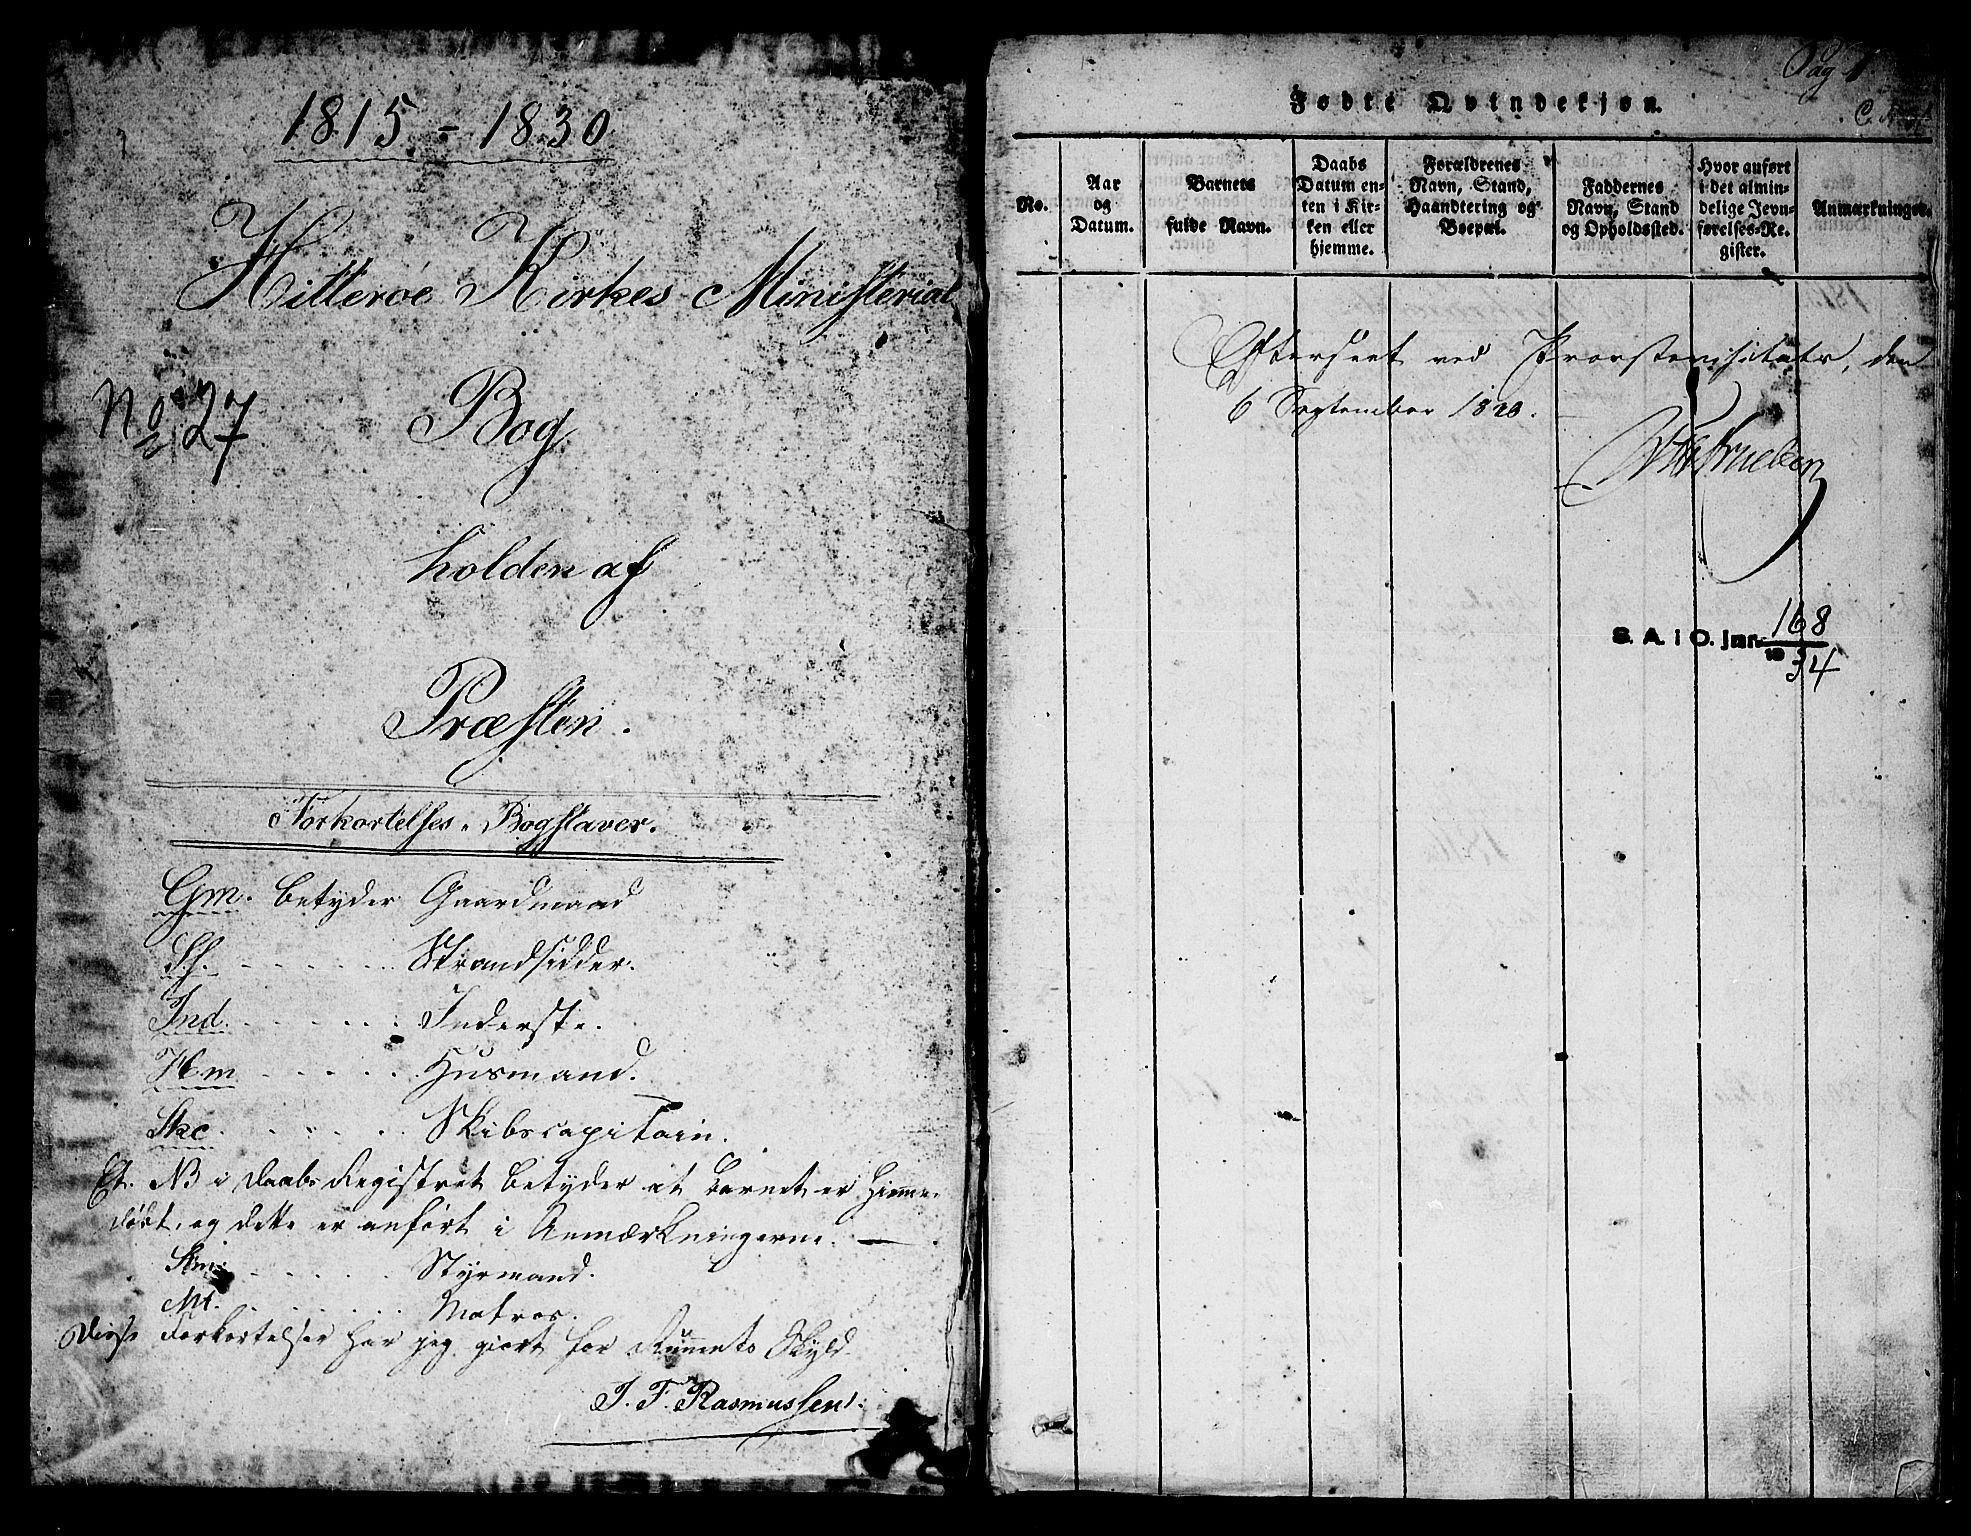 1815 - 1830
Hitterøe Kirkes Ministerial
No 27
Bog
holden af
Præsten.
Forkortelses-Bogstaver.
Gm. betyder Gaardmand
Ss. - - - - - - Strandsidder.
Ind. - - - - - - Inderste.
Hm - - - - - Husmand.
Skc. - - - - Skibscapitain.
Et. NB i Daabs Registret betyder at Barnet er hieme-
døbt, og dette er anført i Anmærkningerne. —
Stm. - - - - - - Styrmand.
Mt. - - - - - - Matros.
Disse Forkortelser har jeg giort for Rummets Skyld.
J. F. Rasmussen.
Pag 1.
Fødte Qvindekjøn.
No.
Aar
og
Datum.
Barnets
fulde Navn.
Daabs
Datum en-
ten i Kir-
ken eller
hjemme.
Forældrenes
Navn, Stand,
Haandtering og
Boepæl.
Faddernes
Navn, Stand
og Opholdssted.
Hvor anført
i det almin-
delige Jevn-
førelses-Re-
gister.
Anmærkninger.
Efterseet ved Provstevisitats, den
6 September 1820.
S. A. i O. Jnr. 168
19 34